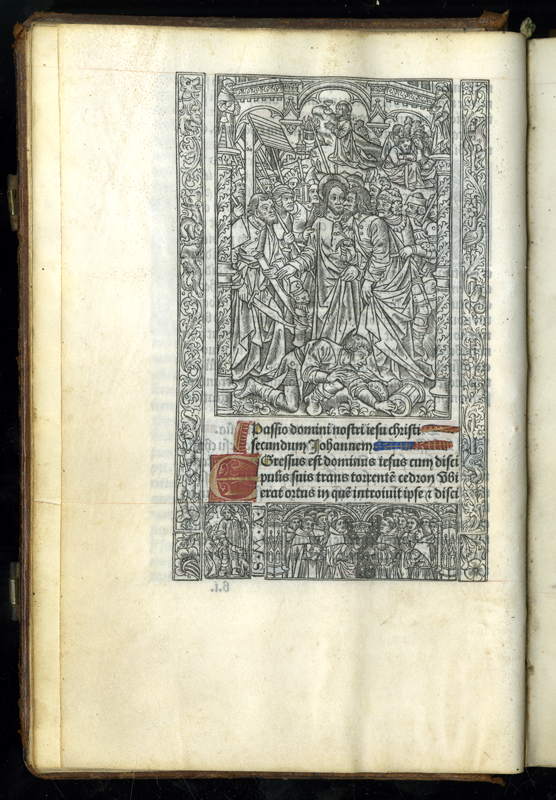 Passio domini nostri iesu christi
secundum Johannem
EGressus est dominus iesus cum disci
pulis suis trans torrentē cedron Vbi
erat ortus in quē introiuit ipse ⁊ disci